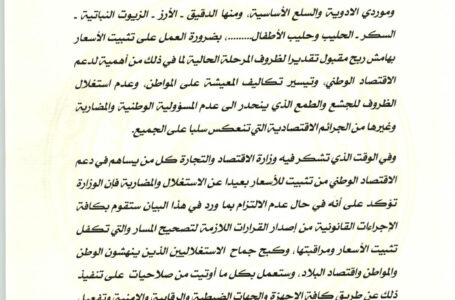 وموردي الادوية والسلع الأساسية، ومنها الدقيق ـ الأرز ـ الزيوت النباتية ـ
السكر ـ الحليب وحليب الأطفال.........، بضرورة العمل على تثبيت الأسعار
بهامش ربح مقبول تقديرا لظروف المرحلة الحالية لما في ذلك من أهمية لدعم
الاقتصاد الوطني، وتيسير تكاليف المعيشة على المواطن، وعدم استغلال
الظروف للجشع والطمع الذي ينحدر الى عدم المسؤولية الوطنية والمضاربة
وغيرها من الجرائم الاقتصادية التي تنعكس سلبا على الجميع.
وفي الوقت الذي تشكر فيه وزارة الاقتصاد والتجارة كل من يساهم في دعم
الاقتصاد الوطني من تثبيت للأسعار بعيدا عن الاستغلال والمضاربة فإن الوزارة
تؤكد على أنه في حال عدم الالتزام بما ورد في هذا البيان ستقوم بكافة
الإجراءات القانونية من إصدار القرارات اللازمة لتصحيح المسار والتي تكفل
تثبيت الأسعار ومراقبتها، وكبح جماح الاستغلاليين الذين ينهشون الوطن
والمواطن واقتصاد البلاد، وستعمل بكل ما أوتيت من صلاحيات على تنفيذ
ذلك عن طريق كافة الاجهزة والجهات الضبطية والرقابية والامنية وتفعيل